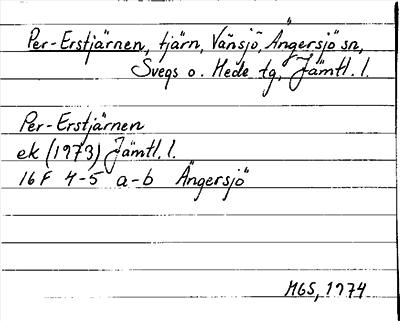 Per-Erstjärnen, tjärn, Vänsjö, Ängersjö sn,
Svegs o. Hede tg, Jämtl. l.
Per-Erstjärnen
ek (1973) Jämtl. l.
16F 4-5 a-b Ängersjö
MGS, 1974